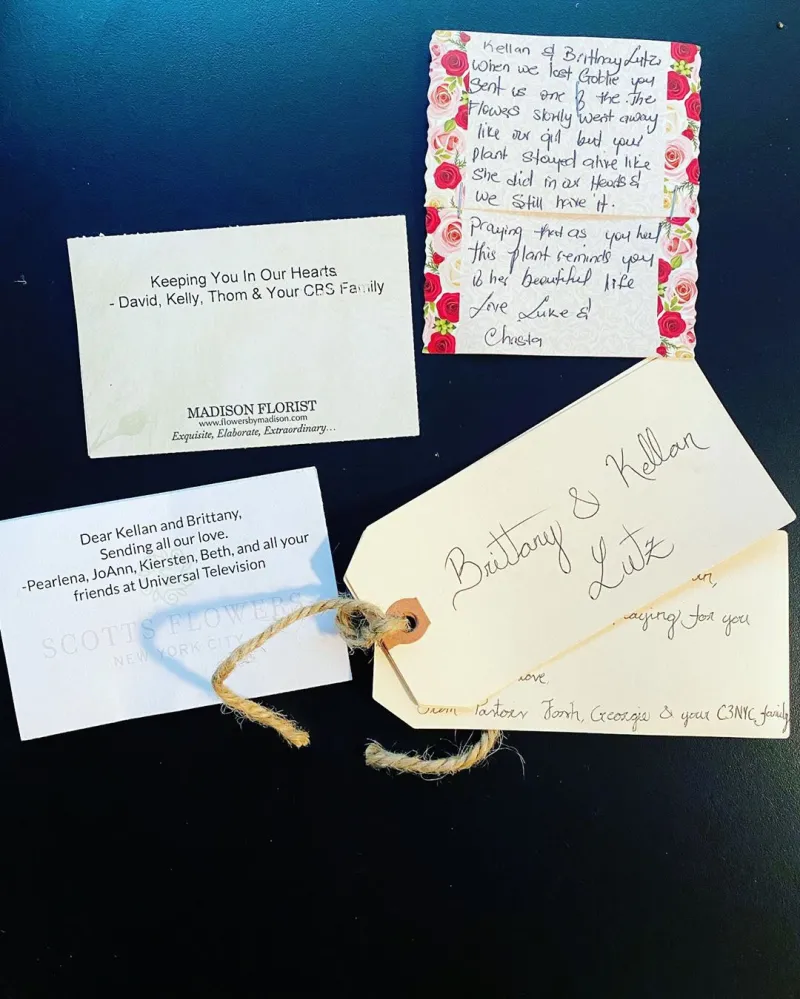 Kellan & Brittnay Lutz
When we lost you
Sent us one of the. The
Flowers slowly went away
like our girl but your
Plant stayed alive like
She did in our Hearts &
We Still have it.
Praying that as you heal
this plant reminds you
of her beautiful life
Love Luke &
Chasta
Keeping You In Our Hearts
- David, Kelly, Thom & Your CBS Family
MADISON FLORIST
www.flowersbymadison.com
Exquisite, Elaborate, Extraordinary...
Dear Kellan and Brittany,
Sending all our love.
-Pearlena, JoAnn, Kiersten, Beth, and all your
friends at Universal Television
SCOTTS FLOWERS
NEW YORK CITY
Brittany & Kellan
Lutz
for you
Georgie & your C3NYC family